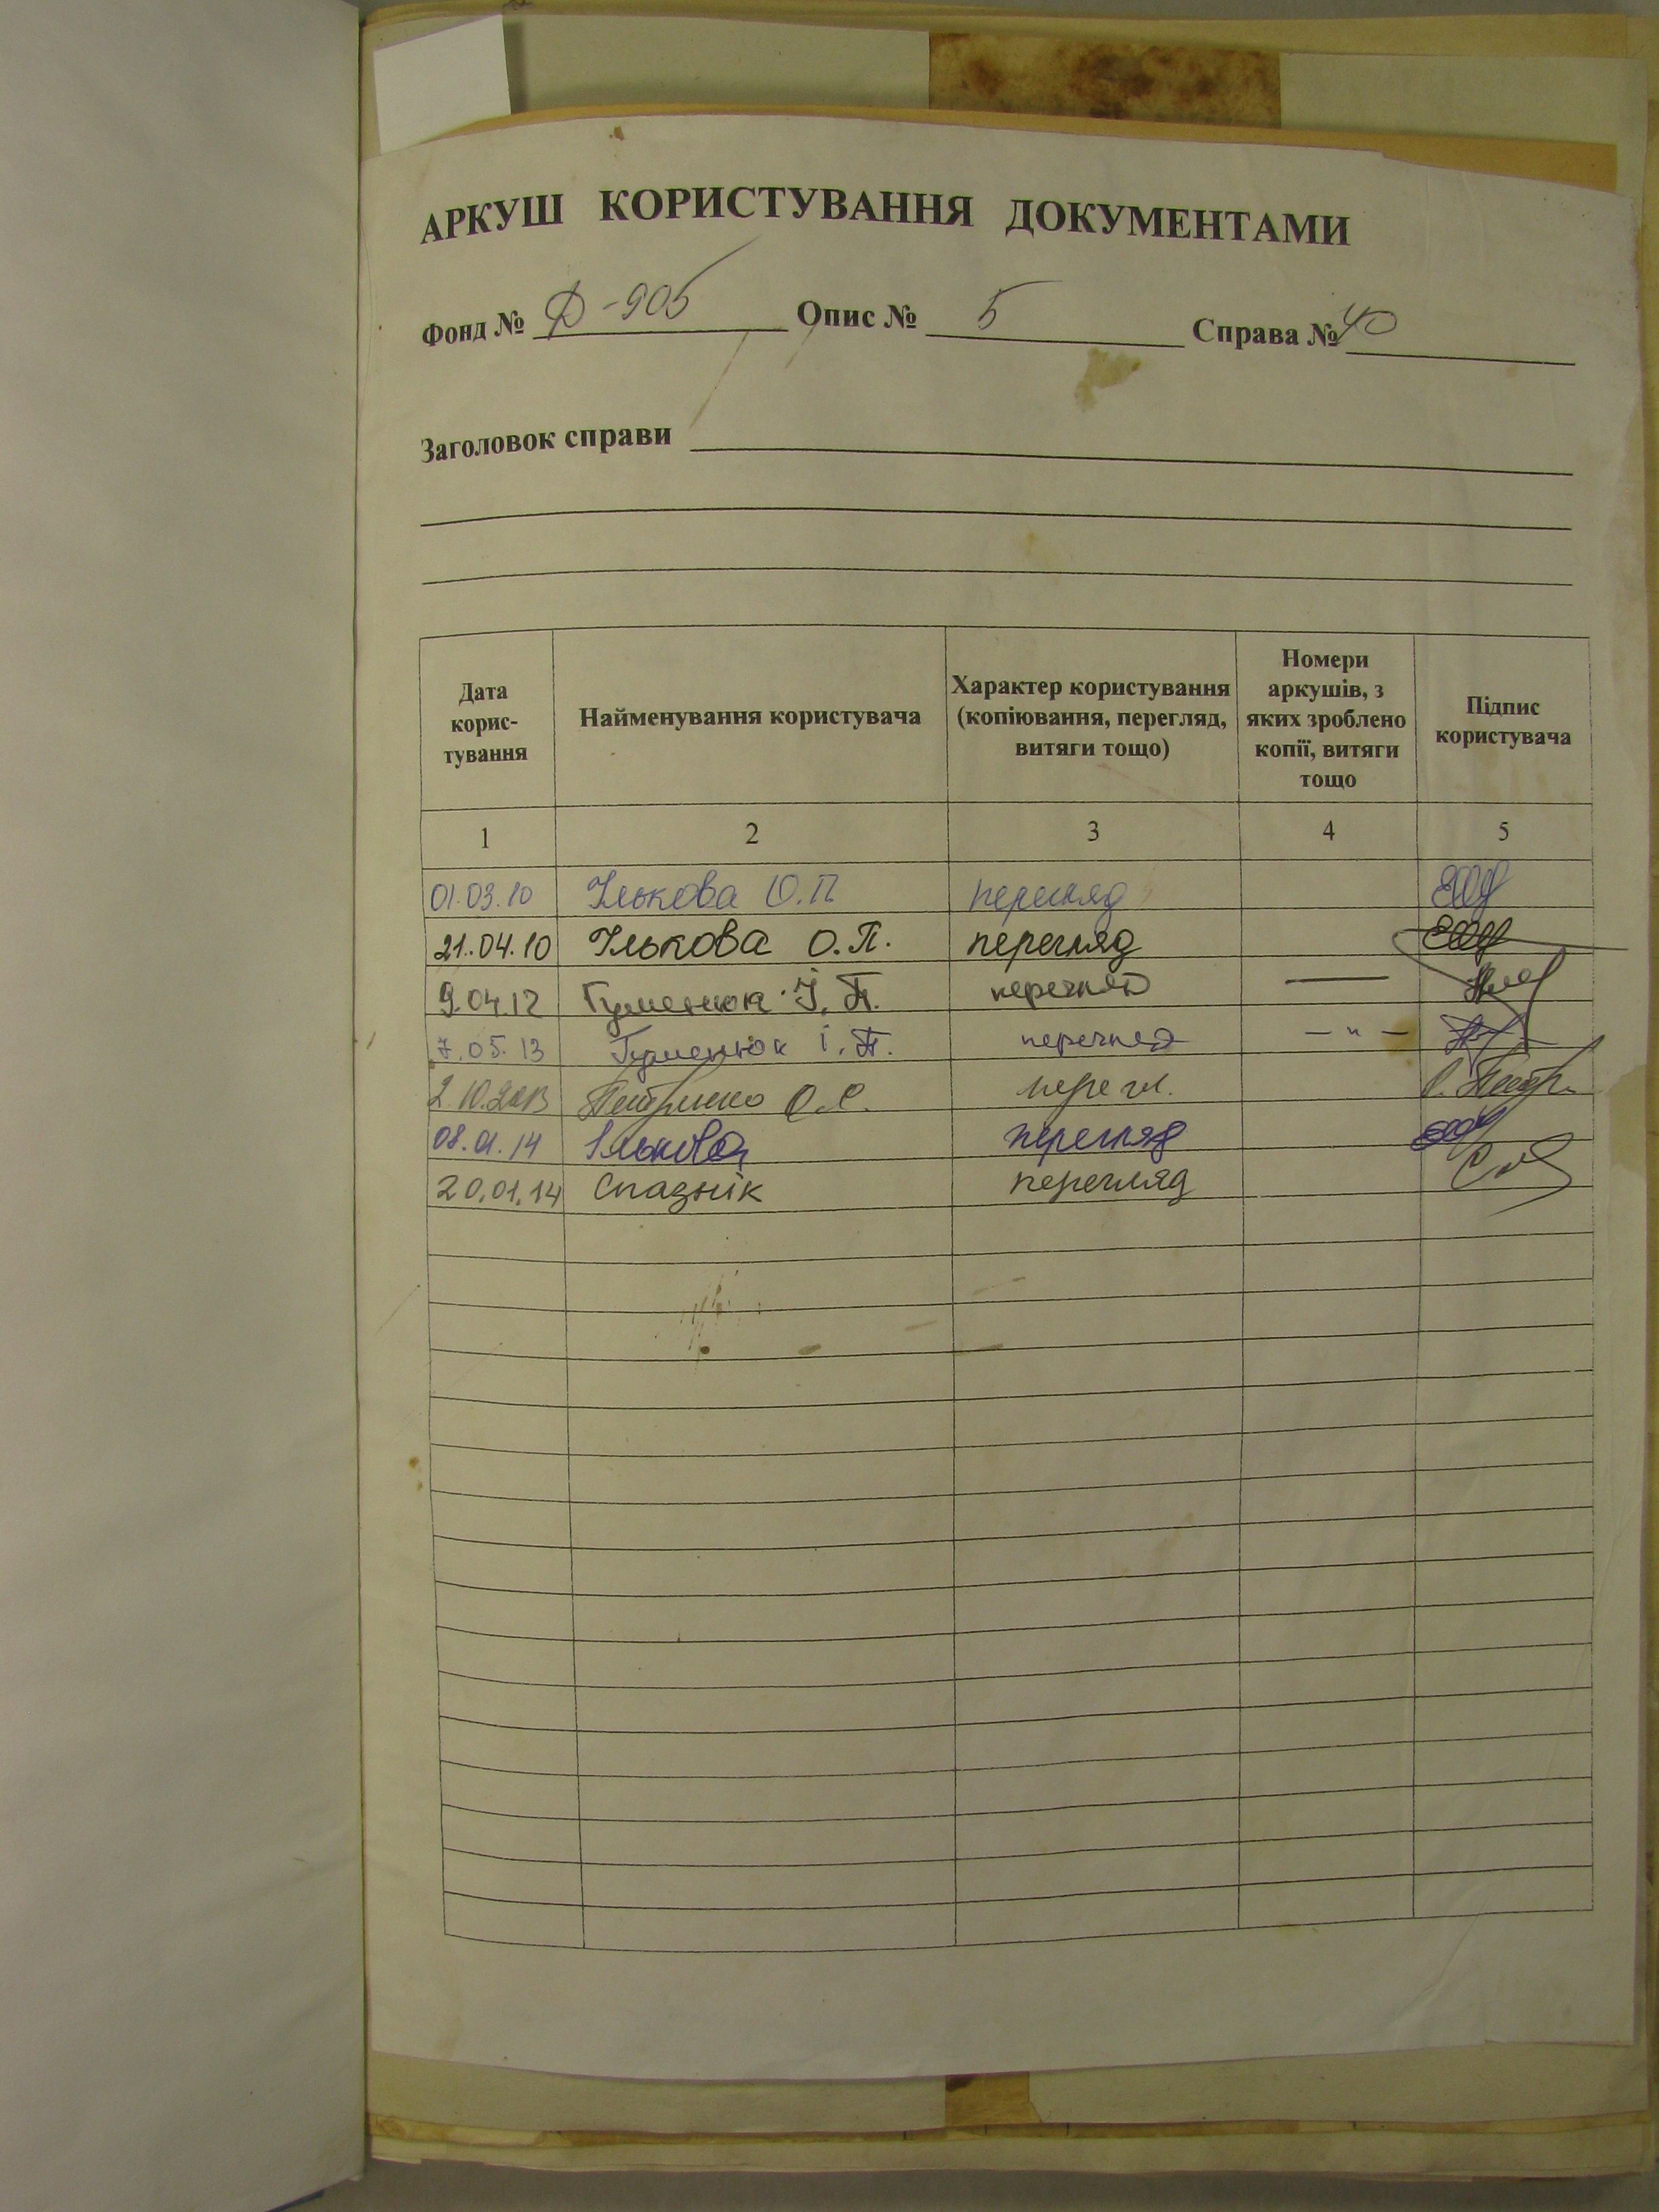 АРКУШ КОРИСТУВАННЯ ДОКУМЕНТАМИ
Фонд № Д-905 Опис № 5 Справа № 40
Заголовок справи
Дата корис-тування
Найменування користувача
Характер користування (копіювання, перегляд, витяги тощо)
Номери аркушів, з яких зроблено копії, витяги тощо
Підпис користувача
1 2 3 4 5
01.03.10 Ількова О.П перегляд
21.04.10 Ількова О.П. перегляд
9.04.12 Гуменюк І. П. перегляд —
7.05.13 Гуменюк І. П. перегляд — " —
2.10.2013 О.С. перегл.
08.01.14 Ількова перегляд
20.01.14 Спазнік перегляд